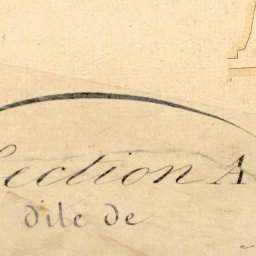 Section A
dite de